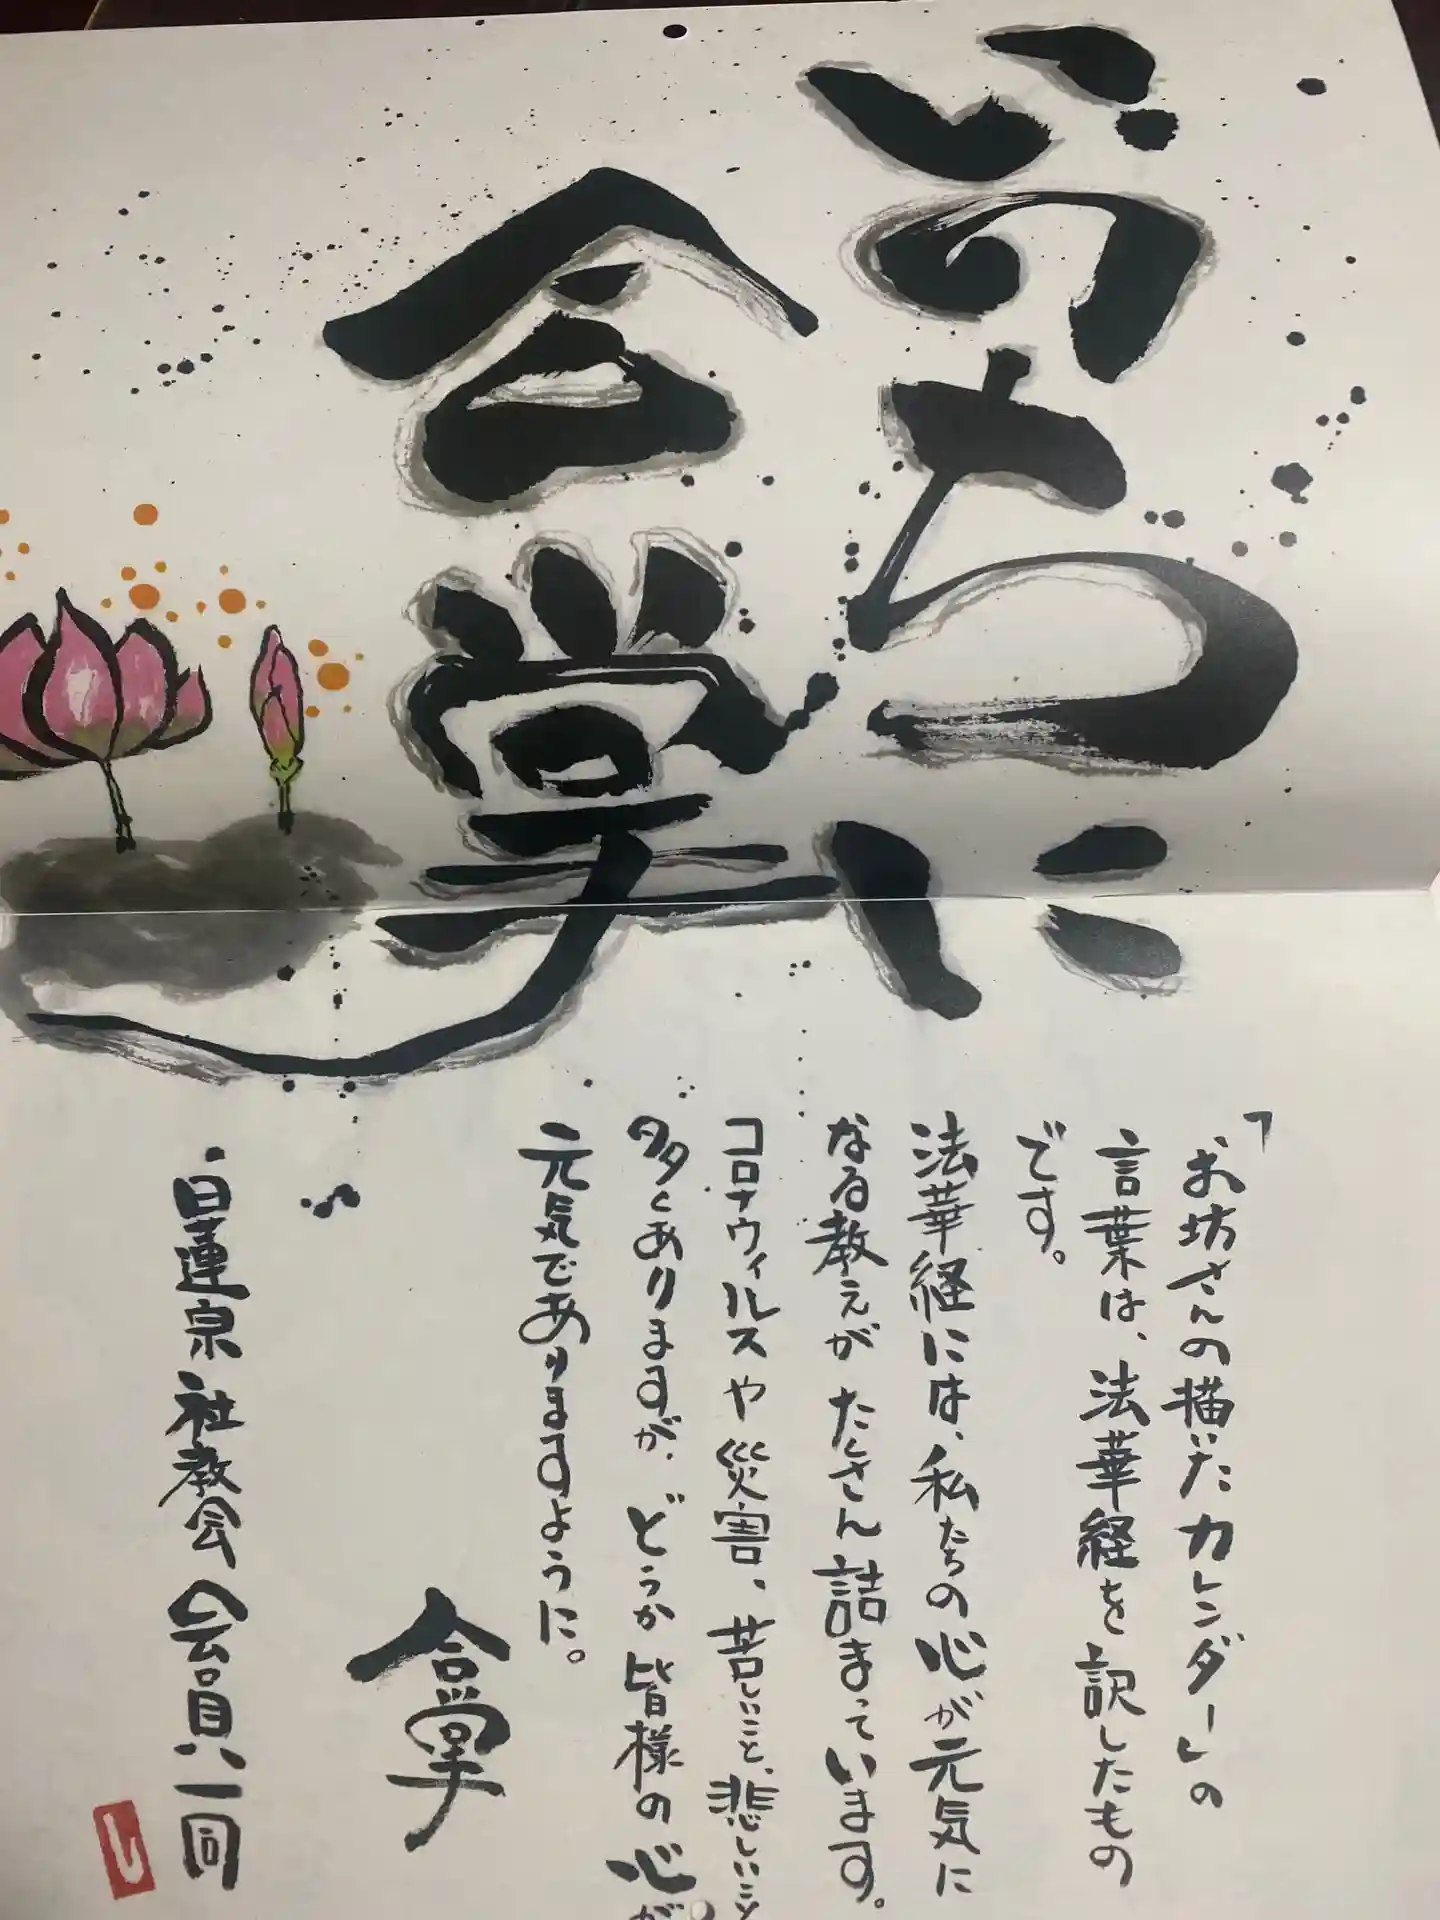 いのちに
合掌
「お坊さんの描いたカレンダー」の
言葉は、法華経を訳したもの
です。
法華経には、私たちの心が元気に
なる教えがたくさん詰まっています。
コロナウィルスや災害、苦しいこと、悲しいこと
多くありますが、どうか皆様の心が
元気でありますように。
合掌
白蓮泉社教会会員一同